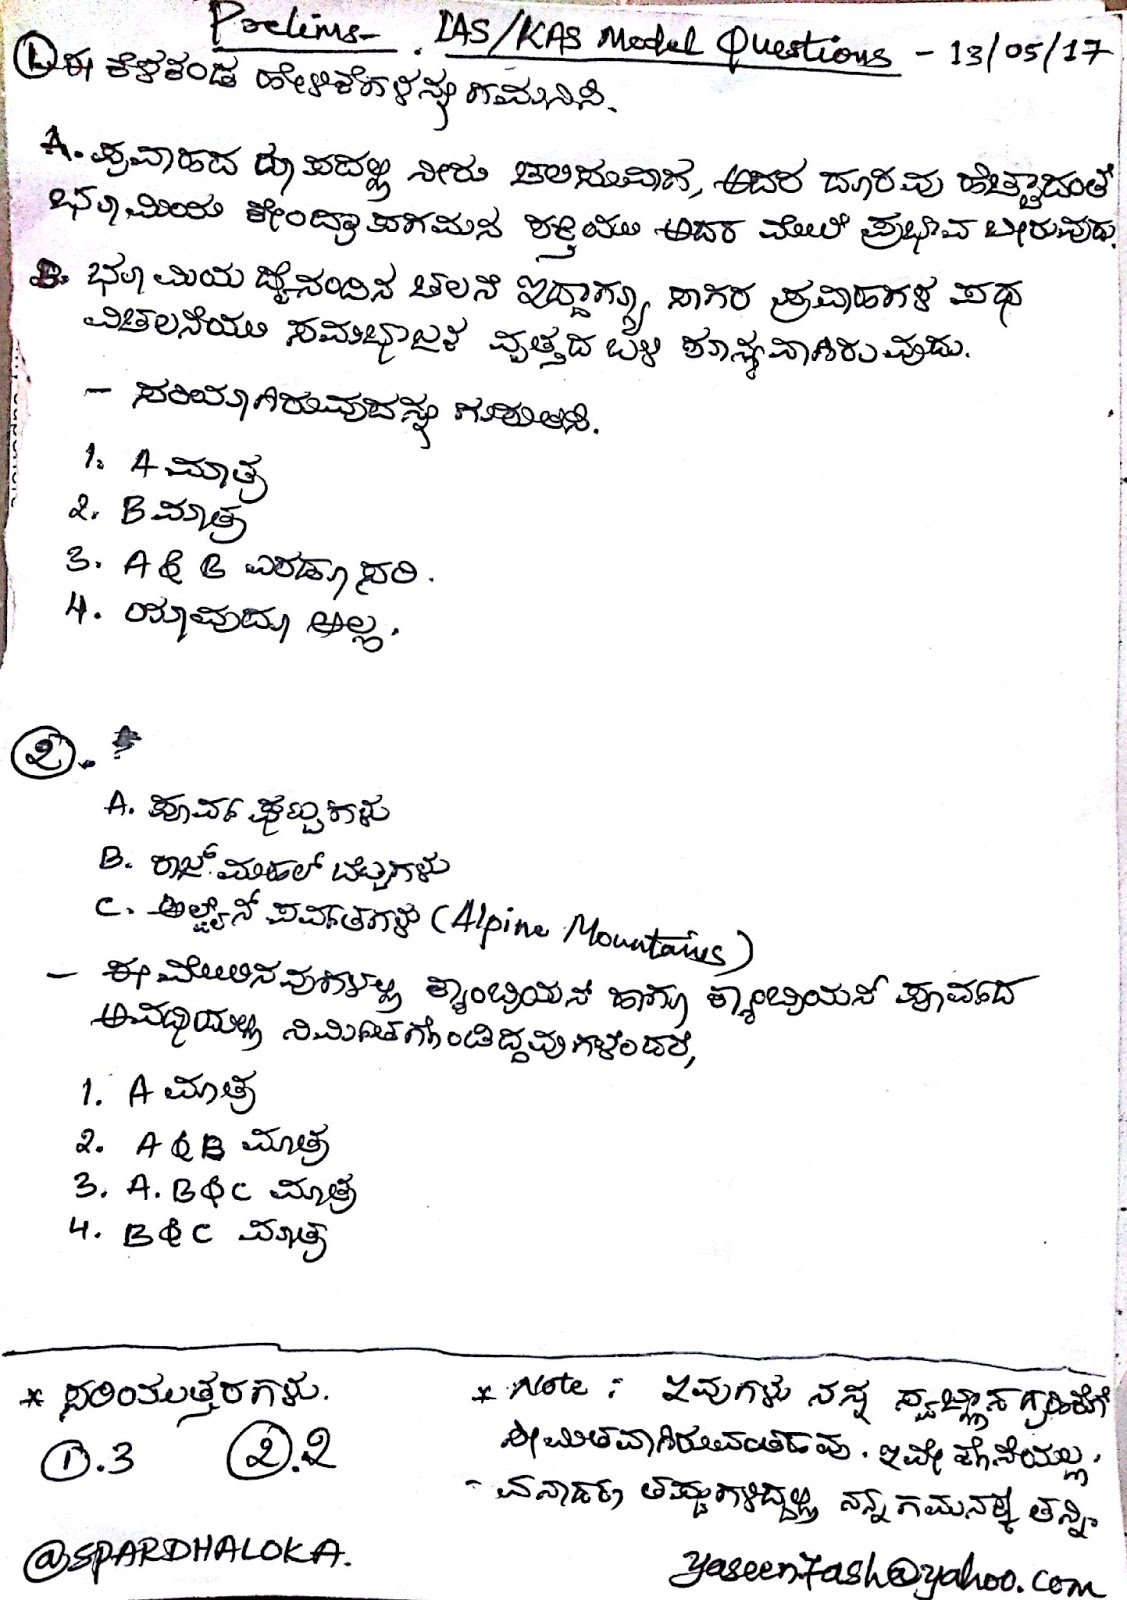 Prelims- IAS/KAS Model Questions - 13/05/17
1. ಈ ಕೆಳಕಂಡ ಹೇಳಿಕೆಗಳನ್ನು ಗಮನಿಸಿ.
A. ಪ್ರವಾಹದ ರೂಪದಲ್ಲಿ ನೀರು ಚಲಿಸುವಾಗ, ಅದರ ದೂರವು ಹೆಚ್ಚಾದಂತೆ
ಭೂಮಿಯ ಕೇಂದ್ರಾಪಗಮನ ಶಕ್ತಿಯು ಅದರ ಮೇಲೆ ಪ್ರಭಾವ ಬೀರುವುದು.
B. ಭೂಮಿಯ ದೈನಂದಿನ ಚಲನೆ ಇದ್ದಾಗ್ಯೂ ಸಾಗರ ಪ್ರವಾಹಗಳ ಪಥ
ವಿಚಲನೆಯು ಸಮಭಾಜಕ ವೃತ್ತದ ಬಳಿ ಶೂನ್ಯವಾಗಿರುವುದು.
- ಸರಿಯಾಗಿರುವುದನ್ನು ಗುರುತಿಸಿ.
1. A ಮಾತ್ರ
2. B ಮಾತ್ರ
3. A & B ಎರಡೂ ಸರಿ.
4. ಯಾವುದೂ ಅಲ್ಲ.
2. ?
A. ಪೂರ್ವ ಘಟ್ಟಗಳು
B. ರಾಜ್ ಮಹಲ್ ಬೆಟ್ಟಗಳು
C. ಅಲ್ಪೈನ್ ಪರ್ವತಗಳು (Alpine Mountains)
- ಈ ಮೇಲಿನವುಗಳಲ್ಲಿ ಕ್ಯಾಂಬ್ರಿಯನ್ ಹಾಗೂ ಕ್ಯಾಂಬ್ರಿಯನ್ ಪೂರ್ವದ
ಅವಧಿಯಲ್ಲಿ ನಿರ್ಮಿತಗೊಂಡಿದ್ದವುಗಳೆಂದರೆ,
1. A ಮಾತ್ರ
2. A & B ಮಾತ್ರ
3. A. B & C ಮಾತ್ರ
4. B & C ಮಾತ್ರ
* ಸರಿಯುತ್ತರಗಳು.
1.3 2.2
@SPARDHALOKA.
* Note : ಇವುಗಳು ನನ್ನ ಸ್ವಜ್ಞಾನ ಗ್ರಹಿಕೆಗೆ
ಸೀಮಿತವಾಗಿರುವಂತಹವು. ಇವೇ ಕೊನೆಯಲ್ಲ.
- ಏನಾದರೂ ತಪ್ಪುಗಳಿದ್ದಲ್ಲಿ ನನ್ನ ಗಮನಕ್ಕೆ ತನ್ನಿ
yaseen7ash@yahoo.com